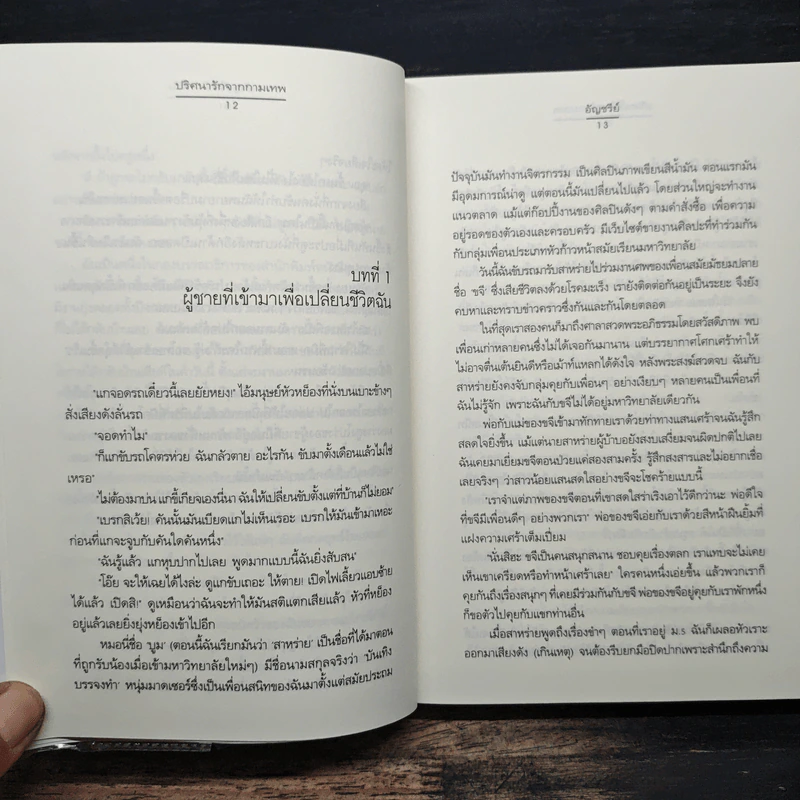 ปริศนารักจากกามเทพ
12
บทที่ 1
ผู้ชายที่เข้ามาเพื่อเปลี่ยนชีวิตฉัน
"แกจอดรถเดี๋ยวนี้เลยยัยหยง!" ไอ้มนุษย์หัวหย็องที่นั่งบนเบาะข้างๆ
สั่งเสียงดังลั่นรถ
"จอดทำไม"
"ก็แกขับรถโคตรห่วย ฉันกลัวตาย อะไรกัน ขับมาตั้งเดือนแล้วไม่ใช่
เหรอ"
"ไม่ต้องมาบ่น แกขี้เกียจเองนี่นา ฉันให้เปลี่ยนขับตั้งแต่ที่บ้านก็ไม่ยอม"
"เบรกสิเว้ย! คันนั้นมันเบียดแกไม่เห็นเรอะ เบรกให้มันเข้ามาเหอะ
ก่อนที่แกจะจูบกับคันใดคันหนึ่ง"
"ฉันรู้แล้ว แกหุบปากไปเลย พูดมากแบบนี้ฉันยิ่งสับสน"
"โอ๊ย จะให้เฉยได้ไงล่ะ ดูแกขับเถอะ ให้ตาย! เปิดไฟเลี้ยวแอบซ้าย
ได้แล้ว เปิดสิ!" ดูเหมือนว่าฉันจะทำให้มันสติแตกเสียแล้ว หัวที่หย็อง
อยู่แล้วเลยยิ่งยุ่งหย็องเข้าไปอีก
หมอนี่ชื่อ 'บูม' (ตอนนี้ฉันเรียกมันว่า 'สาหร่าย' เป็นชื่อที่ได้มาตอน
ที่ถูกรับน้องเมื่อเข้ามหาวิทยาลัยใหม่ๆ) มีชื่อนามสกุลจริงว่า 'บันเทิง
บรรจงทำ' หนุ่มมาดเซอร์ซึ่งเป็นเพื่อนสนิทของฉันมาตั้งแต่สมัยประถม
อัญชรีย์
13
ปัจจุบันมันทำงานจิตรกรรม เป็นศิลปินภาพเขียนสีน้ำมัน ตอนแรกมัน
มีอุดมการณ์น่าดู แต่ตอนนี้มันเปลี่ยนไปแล้ว โดยส่วนใหญ่จะทำงาน
แนวตลาด แม้แต่ก๊อปปี้งานของศิลปินดังๆ ตามคำสั่งซื้อ เพื่อความ
อยู่รอดของตัวเองและครอบครัว มีเว็บไซต์ขายงานศิลปะที่ทำร่วมกัน
กับกลุ่มเพื่อนประเภทหัวก้าวหน้าสมัยเรียนมหาวิทยาลัย
วันนี้ฉันขับรถมารับสาหร่ายไปร่วมงานศพของเพื่อนสมัยมัธยมปลาย
ชื่อ 'ขจี' ซึ่งเสียชีวิตลงด้วยโรคมะเร็ง เรายังติดต่อกันอยู่เป็นระยะ จึงยัง
คบหาและทราบข่าวคราวซึ่งกันและกันโดยตลอด
ในที่สุดเราสองคนก็มาถึงศาลาสวดพระอภิธรรมโดยสวัสดิภาพ พบ
เพื่อนเก่าหลายคนซึ่งไม่ได้เจอกันมานาน แต่บรรยากาศโศกเศร้าทำให้
ไม่อาจตื่นเต้นยินดีหรือเม้าท์แหลกได้ดังใจ หลังพระสงฆ์สวดจบ ฉันกับ
สาหร่ายยังคงจับกลุ่มคุยกับเพื่อนๆ อย่างเงียบๆ หลายคนเป็นเพื่อนที่
ฉันไม่รู้จัก เพราะฉันกับขจีไม่ได้อยู่มหาวิทยาลัยเดียวกัน
พ่อกับแม่ของขจีเข้ามาทักทายเราด้วยท่าทางแสนเศร้าจนฉันรู้สึก
สลดใจยิ่งขึ้น แม้แต่นายสาหร่ายผู้บ้าบอยังสงบเสงี่ยมจนผิดปกติไปเลย
ฉันเคยมาเยี่ยมขจีตอนป่วยแค่สองสามครั้ง รู้สึกสงสารและไม่อยากเชื่อ
เลยจริงๆ ว่าสาวน้อยแสนสดใสอย่างขจีจะโชคร้ายแบบนี้
"เราจำแต่ภาพของขจีตอนที่เขาสดใสร่าเริงเอาไว้ดีกว่านะ พ่อดีใจ
ที่ขจีมีเพื่อนดีๆ อย่างพวกเรา" พ่อของขจีเอ่ยกับเราด้วยสีหน้าฝืนยิ้มที่
แฝงความเศร้าเต็มเปี่ยม
"นั่นสิฮะ ขจีเป็นคนสนุกสนาน ชอบคุยเรื่องตลก เราแทบจะไม่เคย
เห็นเขาเครียดหรือทำหน้าเศร้าเลย" ใครคนหนึ่งเอ่ยขึ้น แล้วพวกเราก็
คุยกันถึงเรื่องสนุกๆ ที่เคยมีร่วมกันกับขจี พ่อของขจีอยู่คุยกับเราพักหนึ่ง
ก็ขอตัวไปคุยกับแขกท่านอื่น
เมื่อสาหร่ายพูดถึงเรื่องขำๆ ตอนที่เราอยู่ ม.5 ฉันก็เผลอหัวเราะ
ออกมาเสียงดัง (เกินเหตุ) จนต้องรีบยกมือปิดปากเพราะสำนึกถึงความ